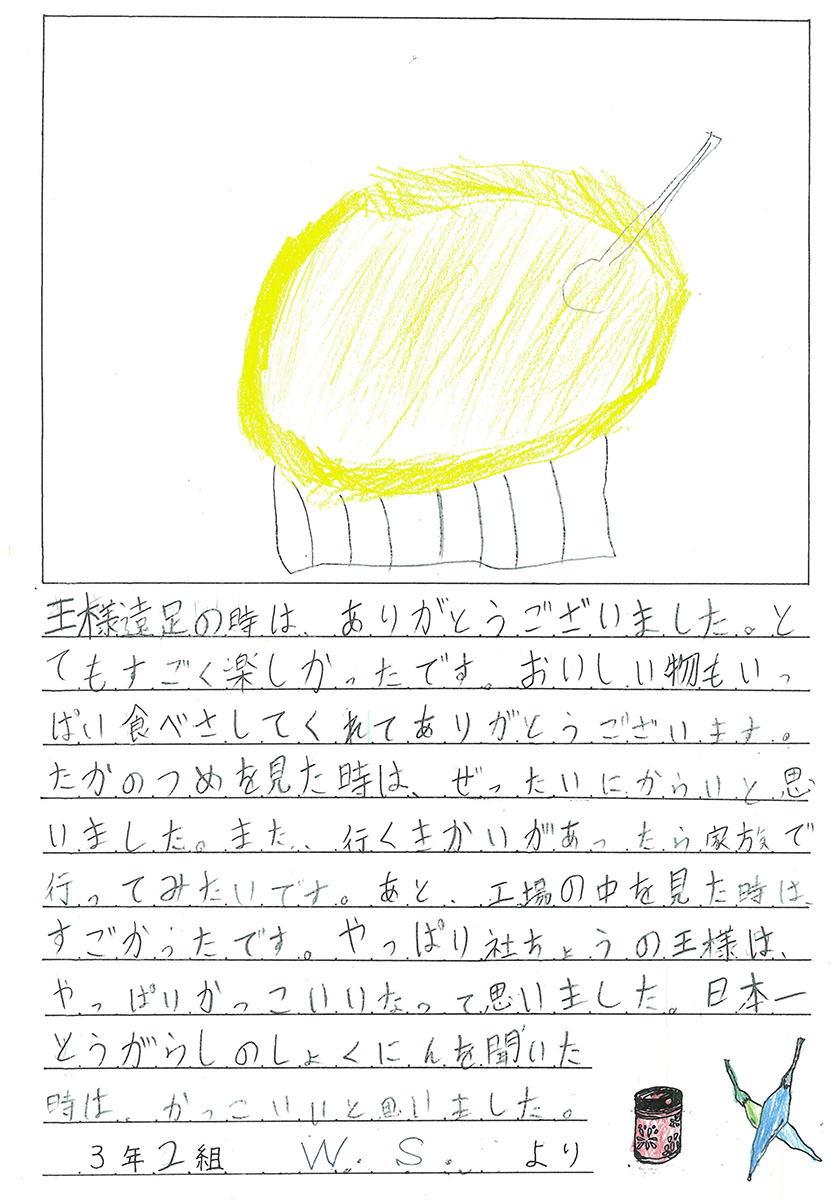 王様遠足の時は、ありがとうございました。と
てもすごく楽しかったです。おいしい物もいっ
ぱい食べさしてくれてありがとうございます。
たかのつめを見た時は、ぜったいにからいと思
いました。また、行くきかいがあったら家族で
行ってみたいです。あと、工場の中を見た時は、
すごかったです。やっぱり社ちょうの王様は、
やっぱりかっこいいなって思いました。日本一
とうがらしのしょくにんを聞いた
時は、かっこいいと思いました。
3年2組 W.S. より